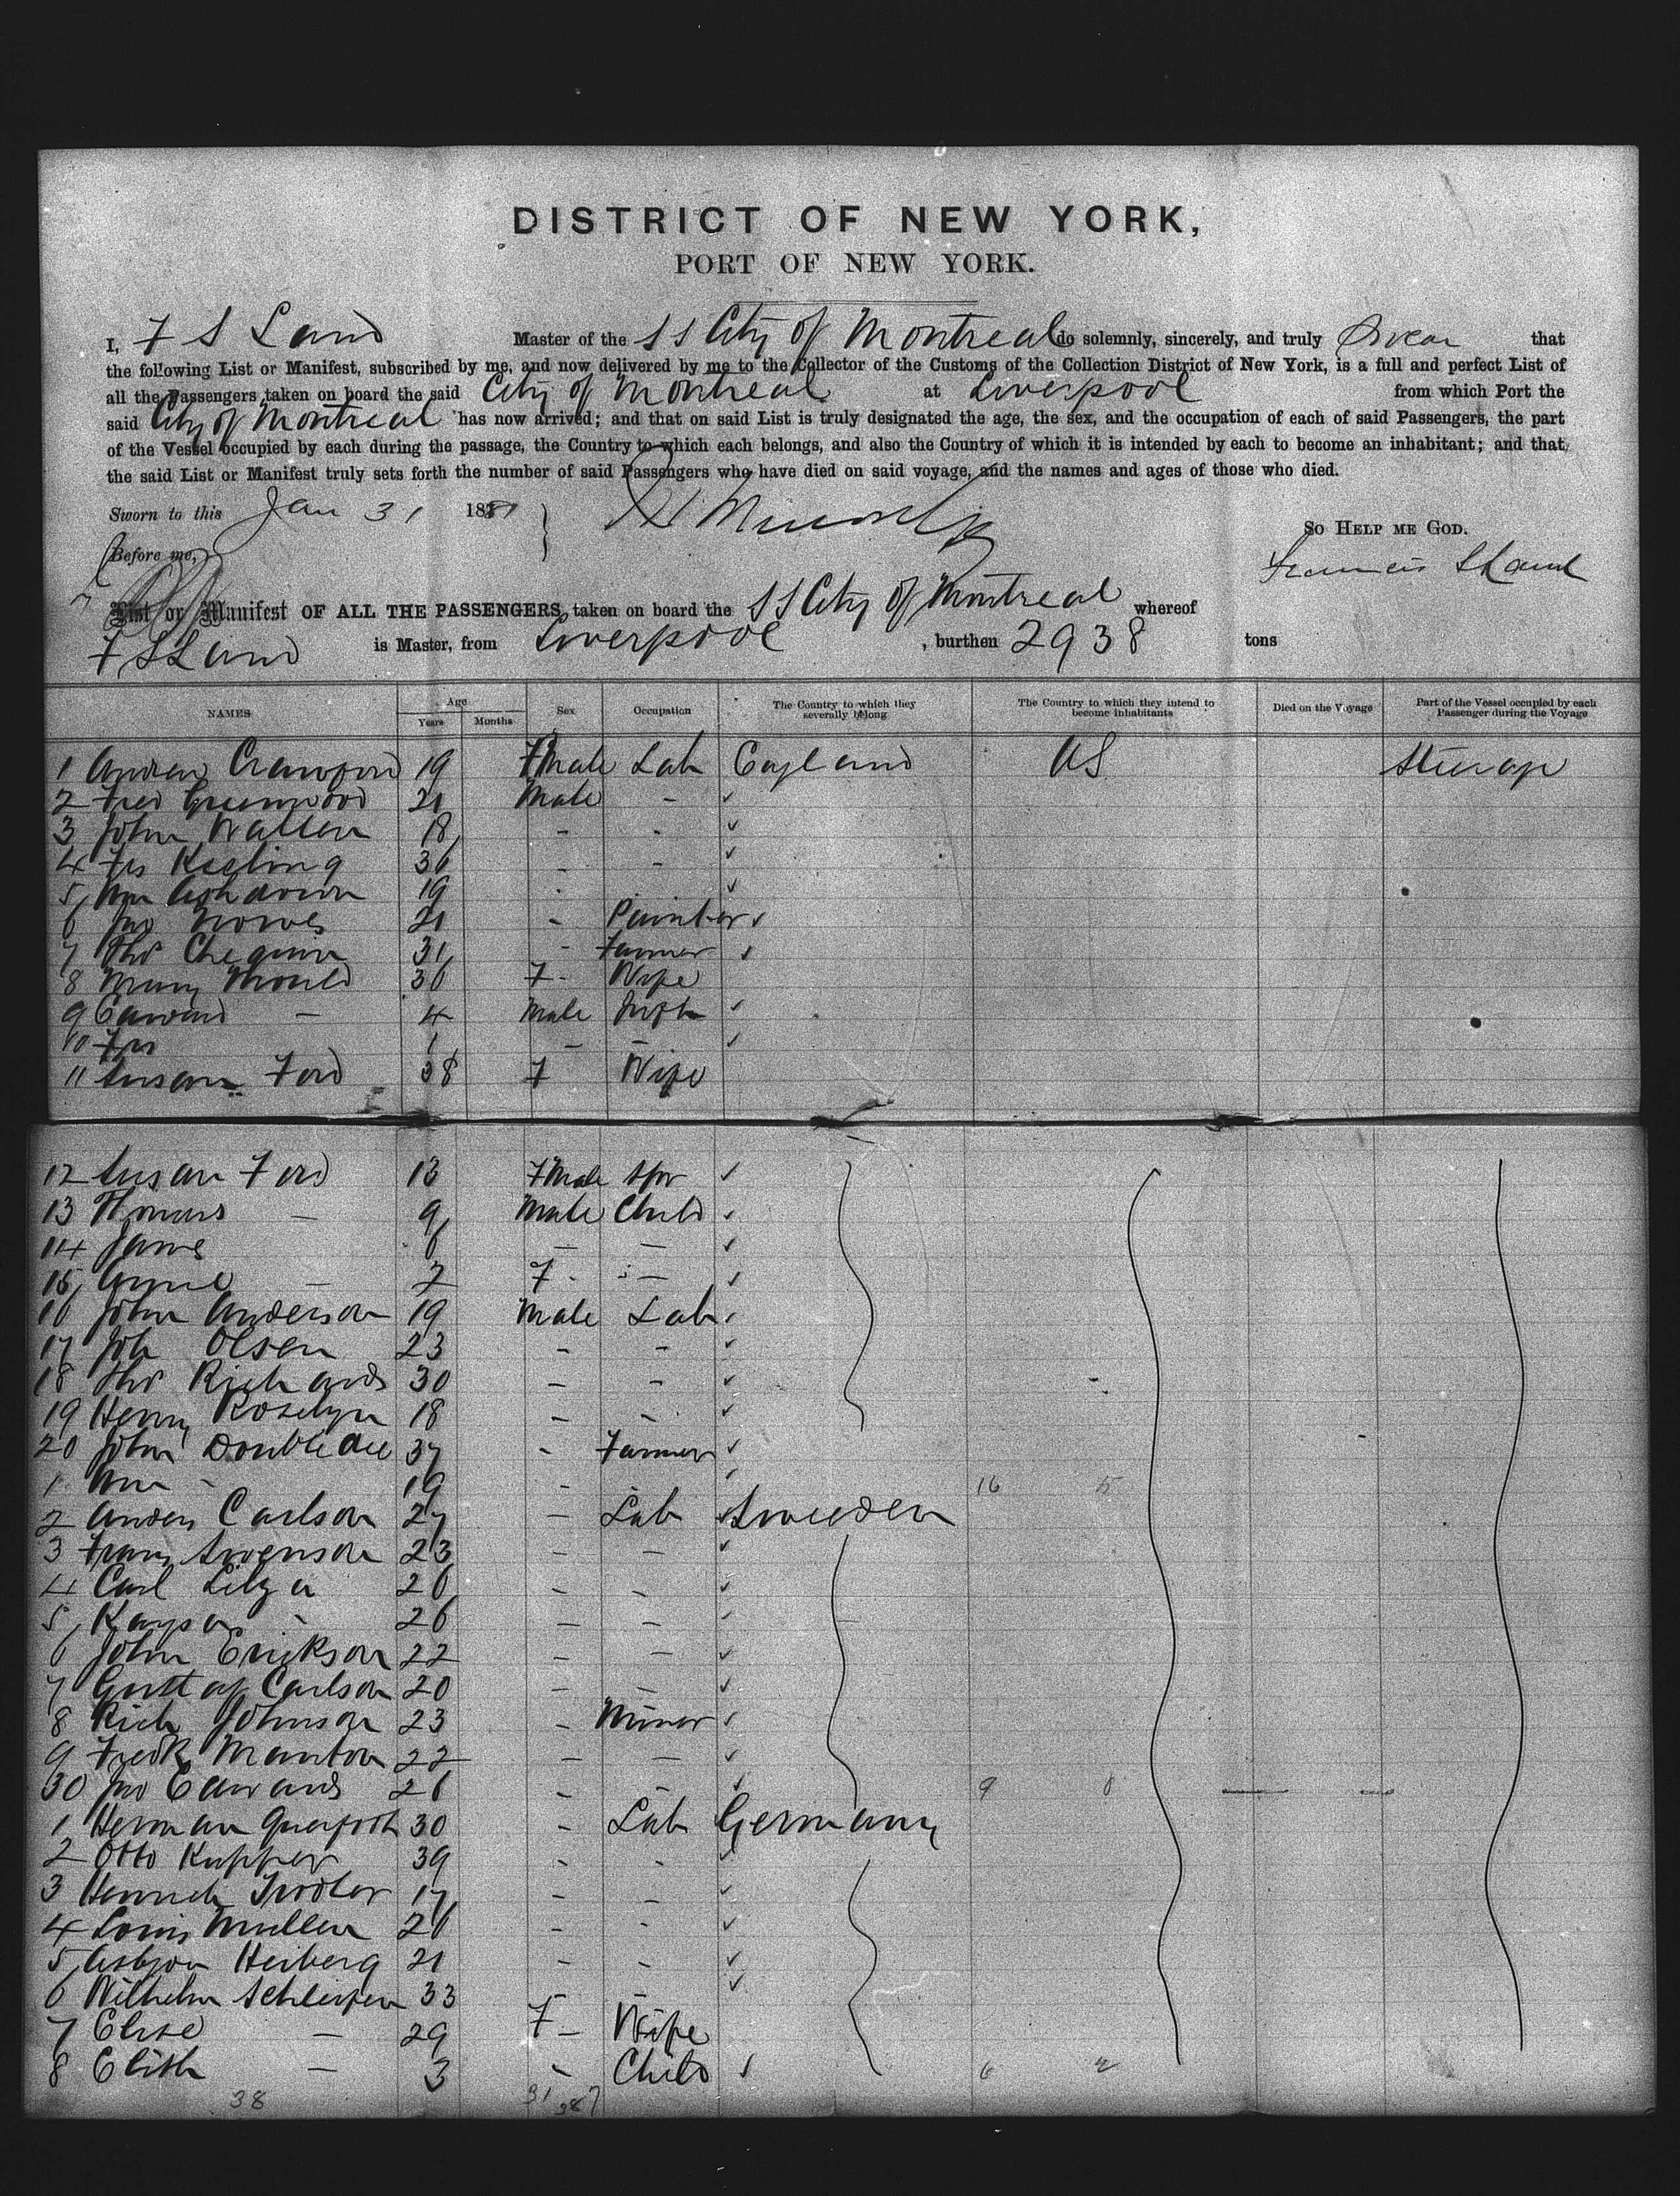 DISTRICT OF NEW YORK,
PORT OF NEW YORK.
I, F S Land Master of the S S City of Montreal do solemnly, sincerely, and truly Swear that
the following List or Manifest, subscribed by me, and now delivered by me to the Collector of the Customs of the Collection District of New York, is a full and perfect List of
all the Passengers taken on board the said City of Montreal at Liverpool from which Port the
said City of Montreal has now arrived; and that on said List is truly designated the age, the sex, and the occupation of each of said Passengers, the part
of the Vessel occupied by each during the passage, the Country to which each belongs, and also the Country of which it is intended by each to become an inhabitant; and that
the said List or Manifest truly sets forth the number of said Passengers who have died on said voyage, and the names and ages of those who died.
Sworn to this Jan 31 188
So Help me God.
Before me, Francis S Land
List or Manifest OF ALL THE PASSENGERS taken on board the S S City of Montreal whereof
F S Land is Master, from Liverpool, burthen 2938 tons
NAMES Age Years Months Sex Occupation The Country to which they severally belong The Country to which they intend to become inhabitants Died on the Voyage Part of the Vessel occupied by each Passenger during the Voyage
1 Andrew Crawford 19 Male Lab England US Steerage
2 Fred Greenwood 21 Male -
3 John Wallen 18 - -
4 Frs Keeling 36 - -
5 Wm Ashdown 19 -
6 Jno 21 - Painter
7 Thos Chequin 31 - Farmer
8 Mary Mould 36 F - Wife
9 Edward - 4 Male Infth
10 Frs 1 - -
11 Susan Ford 38 F Wife
12 Susan Ford 13 FMale Spr
13 Thomas - 9 Male Child
14 Jams - -
15 Annie - 7 F - -
16 John Anderson 19 Male Lab
17 Joh Olsen 23 - -
18 Thos Richards 30 - -
19 Henry Roselyn 18 - -
20 John Doubledee 37 - Farmer
1 Wm - 19 - - 16 5
2 Anders Carlson 27 - Lab Sweeden
3 Franz Swenson 23 - -
4 Carl Lilza 26 - -
5 Kaysa - 26 - -
6 John Erickson 22 - -
7 Gustaf Carlson 20 - -
8 Rich Johnson 23 - Miner
9 Fredk Manton 22 - -
30 Jno Edwards 26 - - 9 0
1 Herman Querfoth 30 - Lab Germany
2 Otto Kupper 39 - -
3 Henrich 17 - -
4 Louis Mullen 26 - -
5 Asbjorn Heiberg 21 - -
6 Wilhelm Schleifen 33 - -
7 Elise - 29 F - Wife
8 Elith - 3 - Child 6 2
38 31 7